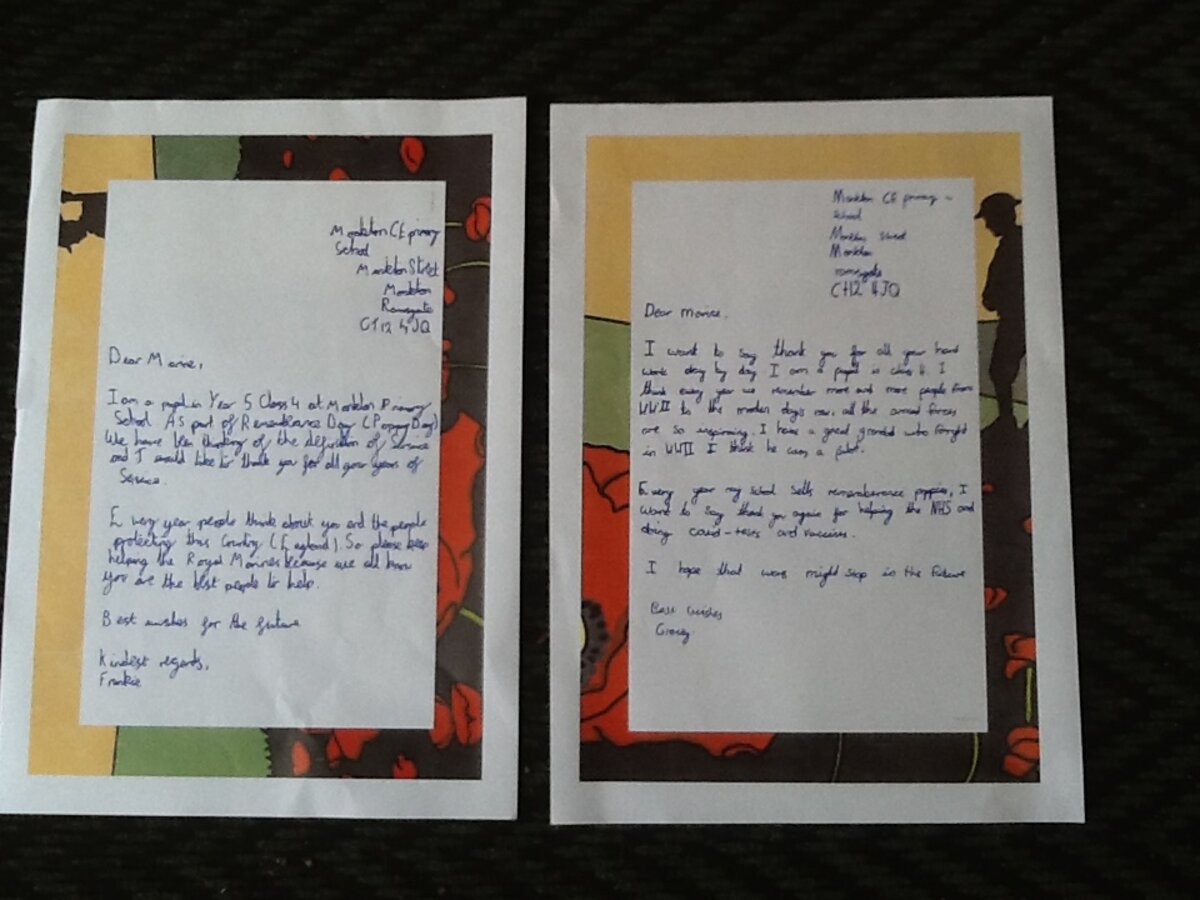 Monkton CE primary
School
Monkton Street
Monkton
Ramsgate
CT12 4JQ
Dear Marine,
I am a pupil in Year 5 Class 4 at Monkton Primary
School. As part of Remembrance Day (Poppy Day)
We have been thinking of the definition of Service
and I would like to thank you for all your years of
Service.
Every year people think about you and the people
protecting this Country (England). So please keep
helping the Royal Marines because we all know
you are the best people to help.
Best wishes for the future
Kindest regards,
Frankie
Monkton CE primary -
School
Monkton Street
Monkton
ramsgate
CT12 4JQ
Dear marine.
I want to say thank you for all your hard
work day by day. I am a pupil in class 4. I
think every year we remember more and more people from
WWII to the modern days now, all the armed forces
are so inspiring. I have a great grandad who fought
in WWII I think he was a
Every year my school sells rememberance poppies, I
want to say thank you again for helping the NHS and
doing covid-tests and vaccines.
I hope that wars might stop in the future
Best wishes